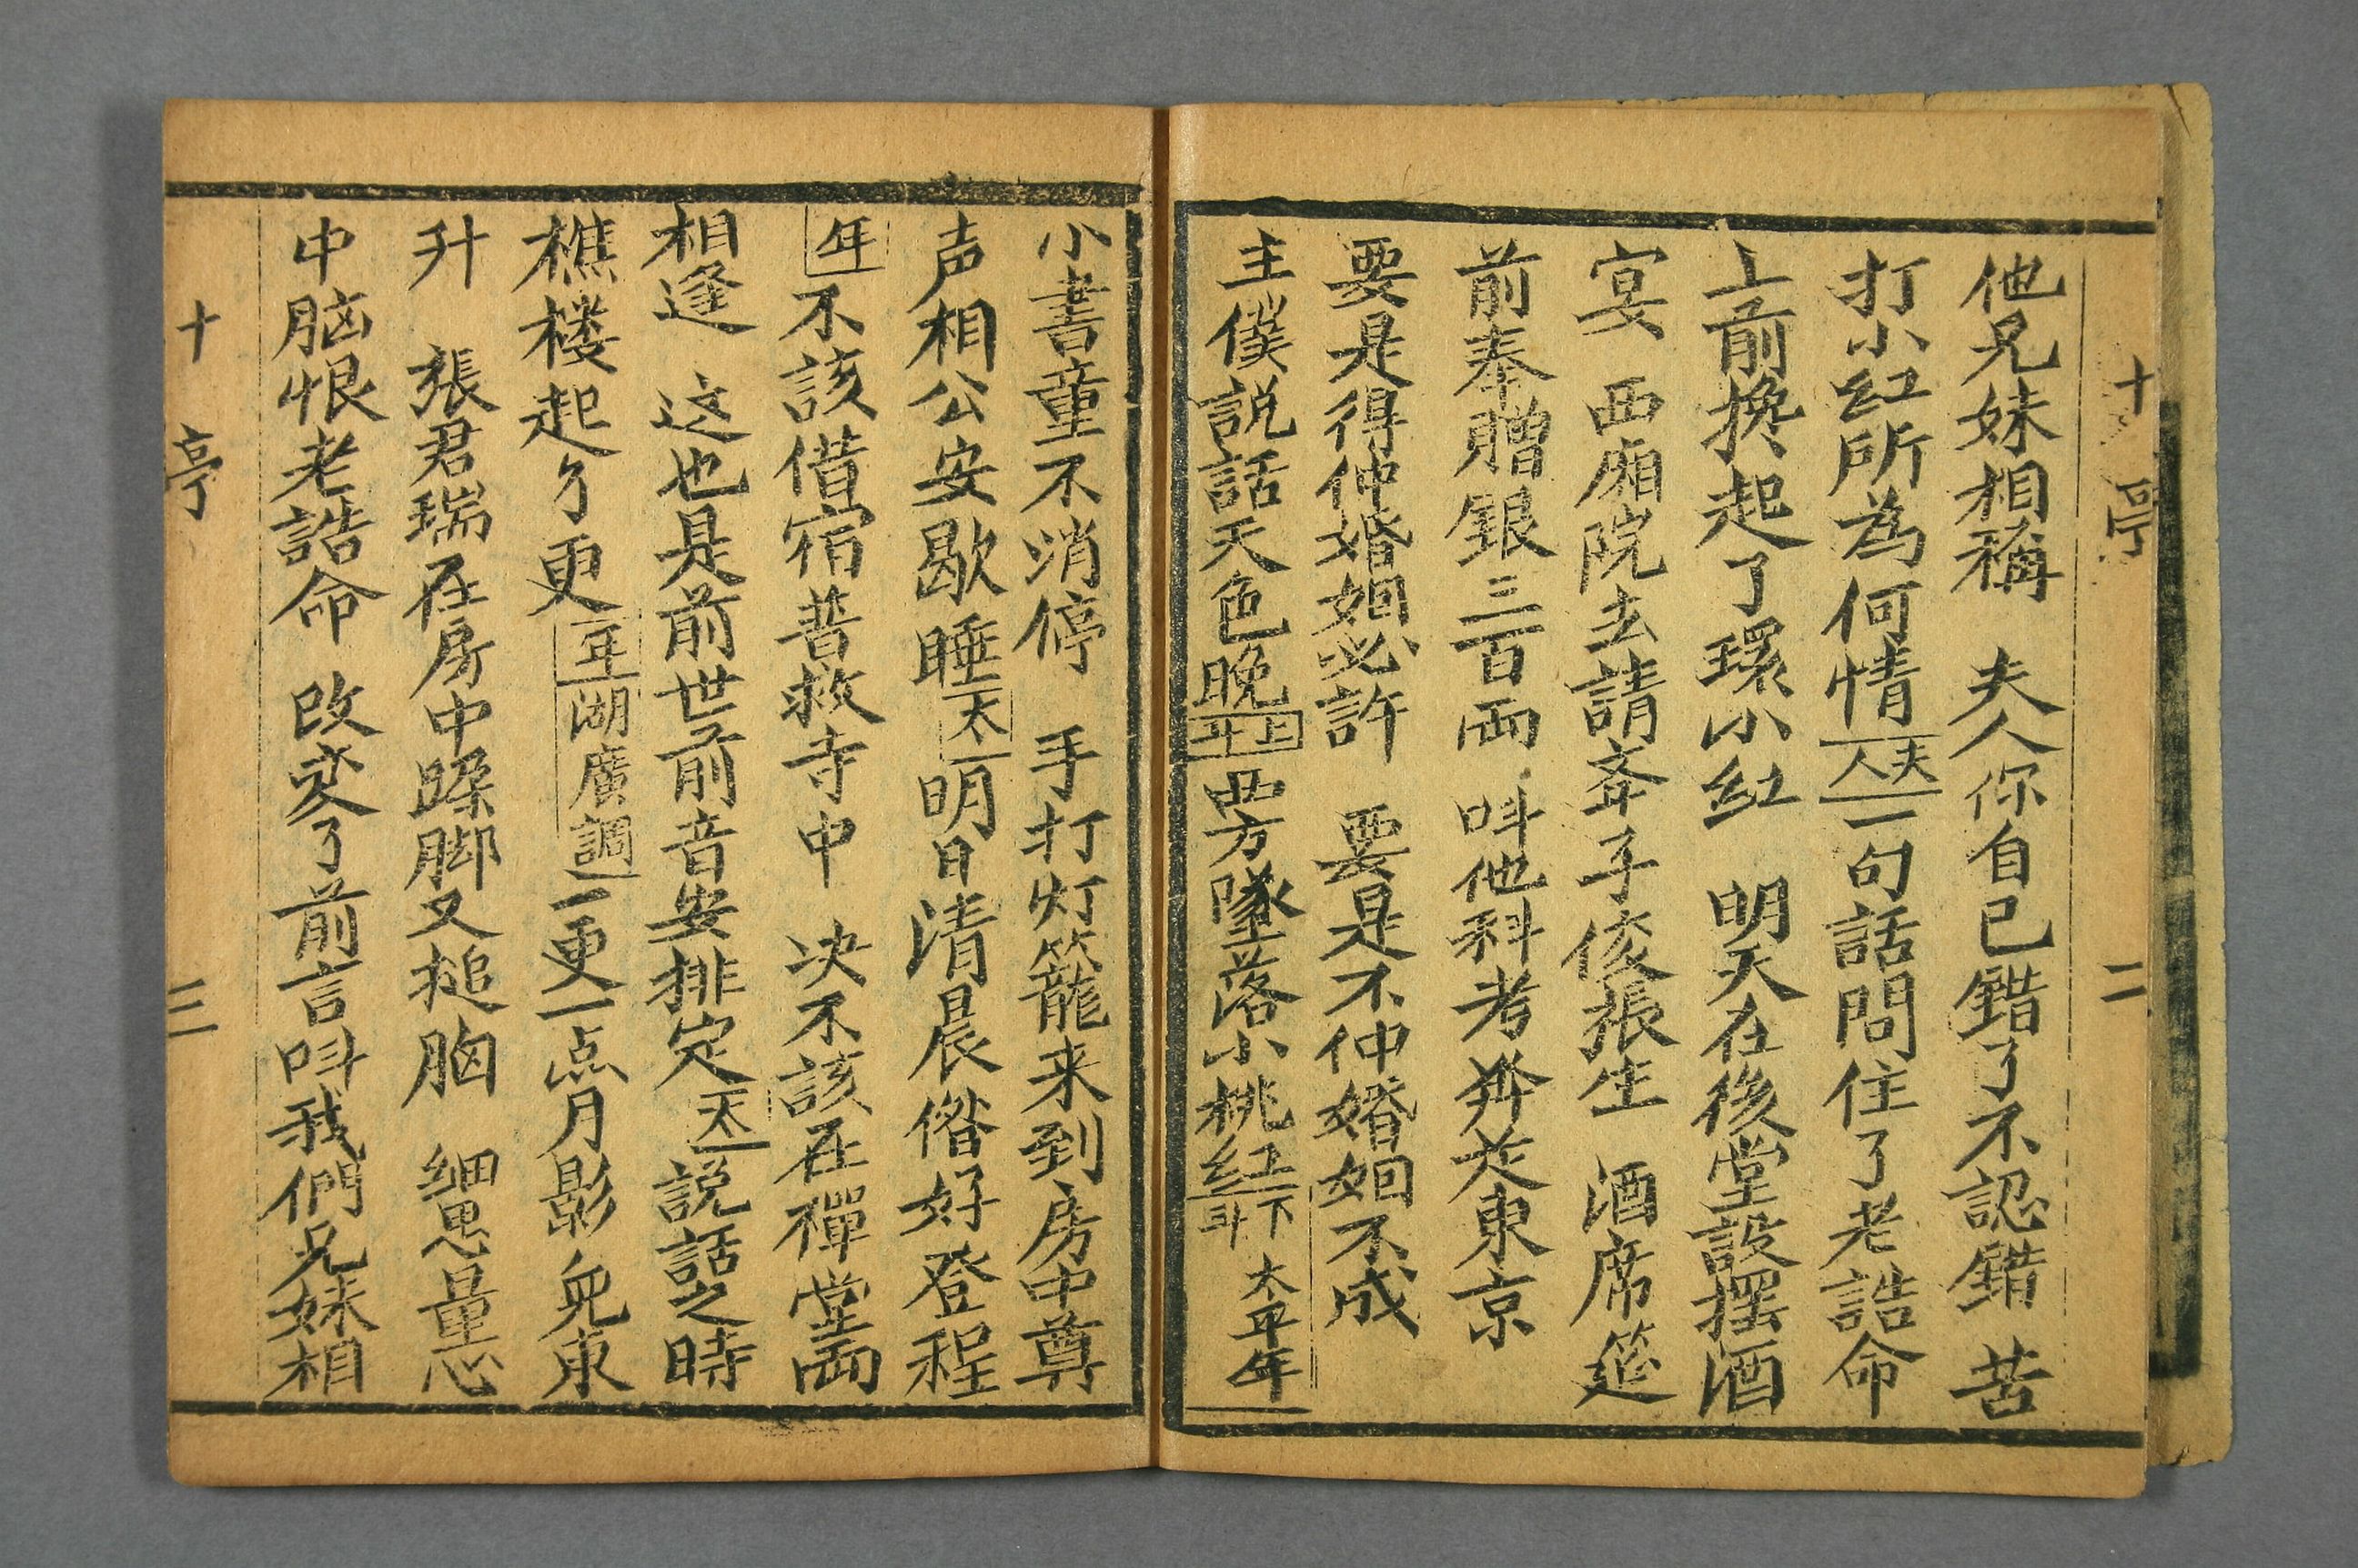 十亭 二
他兄妹相稱 夫人你自己錯了不認錯 苦
打小红所為何情 夫人 一句話問住了老誥命
上前挽起了環小红 明天在後堂設摆酒
宴 西廂院去請夆子俊張生 酒席筵
前奉贈銀三百両 呌他科考奔走東京
要是得仲婚姻必許 要是不仲婚姻不成
主僕説話天色晚 上斗 西方墜落小桃红 下斗 太平年
小書童不消停 手打灯籠来到房中尊
声相公安歇睡 太 明日清晨偺好登程
年 不該借宿普救寺中 决不該在禪堂両
相逢 这也是前世前音安排定 太 説話之時
樵楼起了更 年 湖廣調 一更一点月影兒東
升 張君瑞在房中跺脚又搥胸 细思量心
中脑恨老誥命 改変了前言呌我們兄妹相
十亭 三